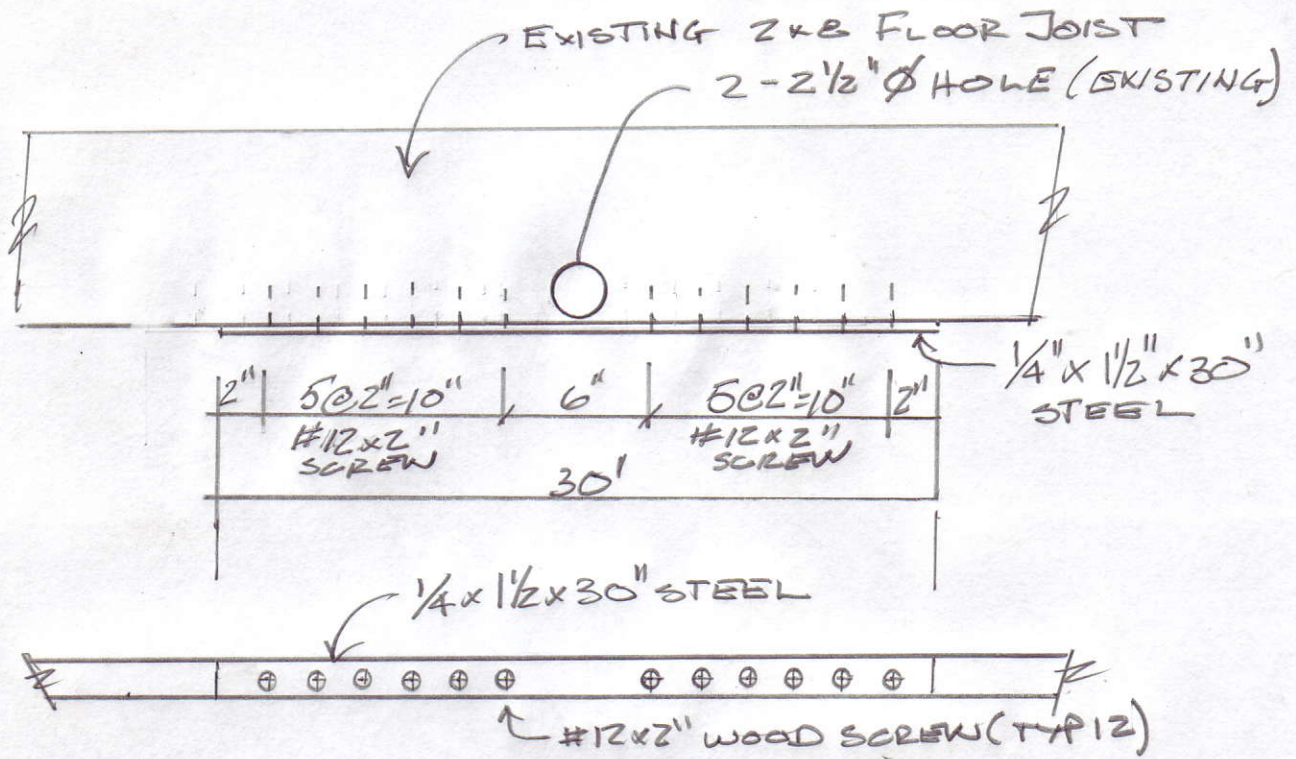 EXISTING 2x8 FLOOR JOIST
2-2 1/2" Ø HOLE (EXISTING)
1/4" x 1 1/2" x 30"
STEEL
2" 5@2"=10" 6" 5@2"=10" 2"
#12x2" #12x2"
SCREW SCREW
30'
1/4 x 1 1/2 x 30" STEEL
#12x2" WOOD SCREW (TYP 12)